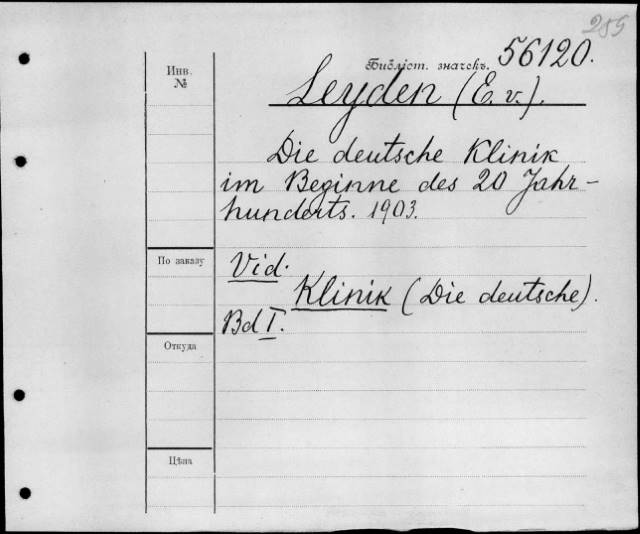 285
Инв.
№
Библіот. значекъ. 56120.
Leyden (E. v.).
Die deutsche Klinik
im Beginne des 20 Jahr-
hunderts. 1903.
По заказу
Vid.
Klinik (Die deutsche).
Bd I.
Откуда
Цѣна